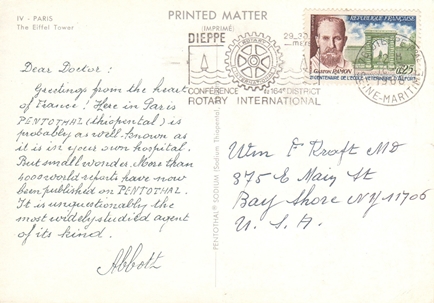 IV - PARIS
The Eiffel Tower
PRINTED MATTER
(IMPRIMÉ)
DIEPPE
CONFÉRENCE 164e DISTRICT
ROTARY INTERNATIONAL
RÉPUBLIQUE FRANÇAISE
GASTON RAMON
BICENTENAIRE DE L'ÉCOLE VÉTÉRINAIRE D'ALFORT
SEINE-MARITIME
Dear Doctor:
Greetings from the heart
of France! Here in Paris
PENTOTHAL (thiopental) is
probably as well-known as
it is in your own hospital.
But small wonder. More than
4000 world reports have now
been published on PENTOTHAL.
It is unquestionably the
most widely studied agent
of its kind.
Abbott
PENTOTHAL® SODIUM (Sodium Thiopental)
Wm F Kraft MD
375 E Main St
Bay Shore NY 11706
U.S.A.